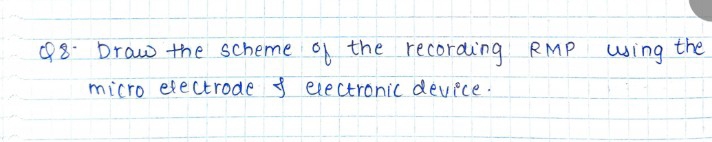 Q8- Draw the scheme of the recording RMP using the
micro electrode & electronic device.